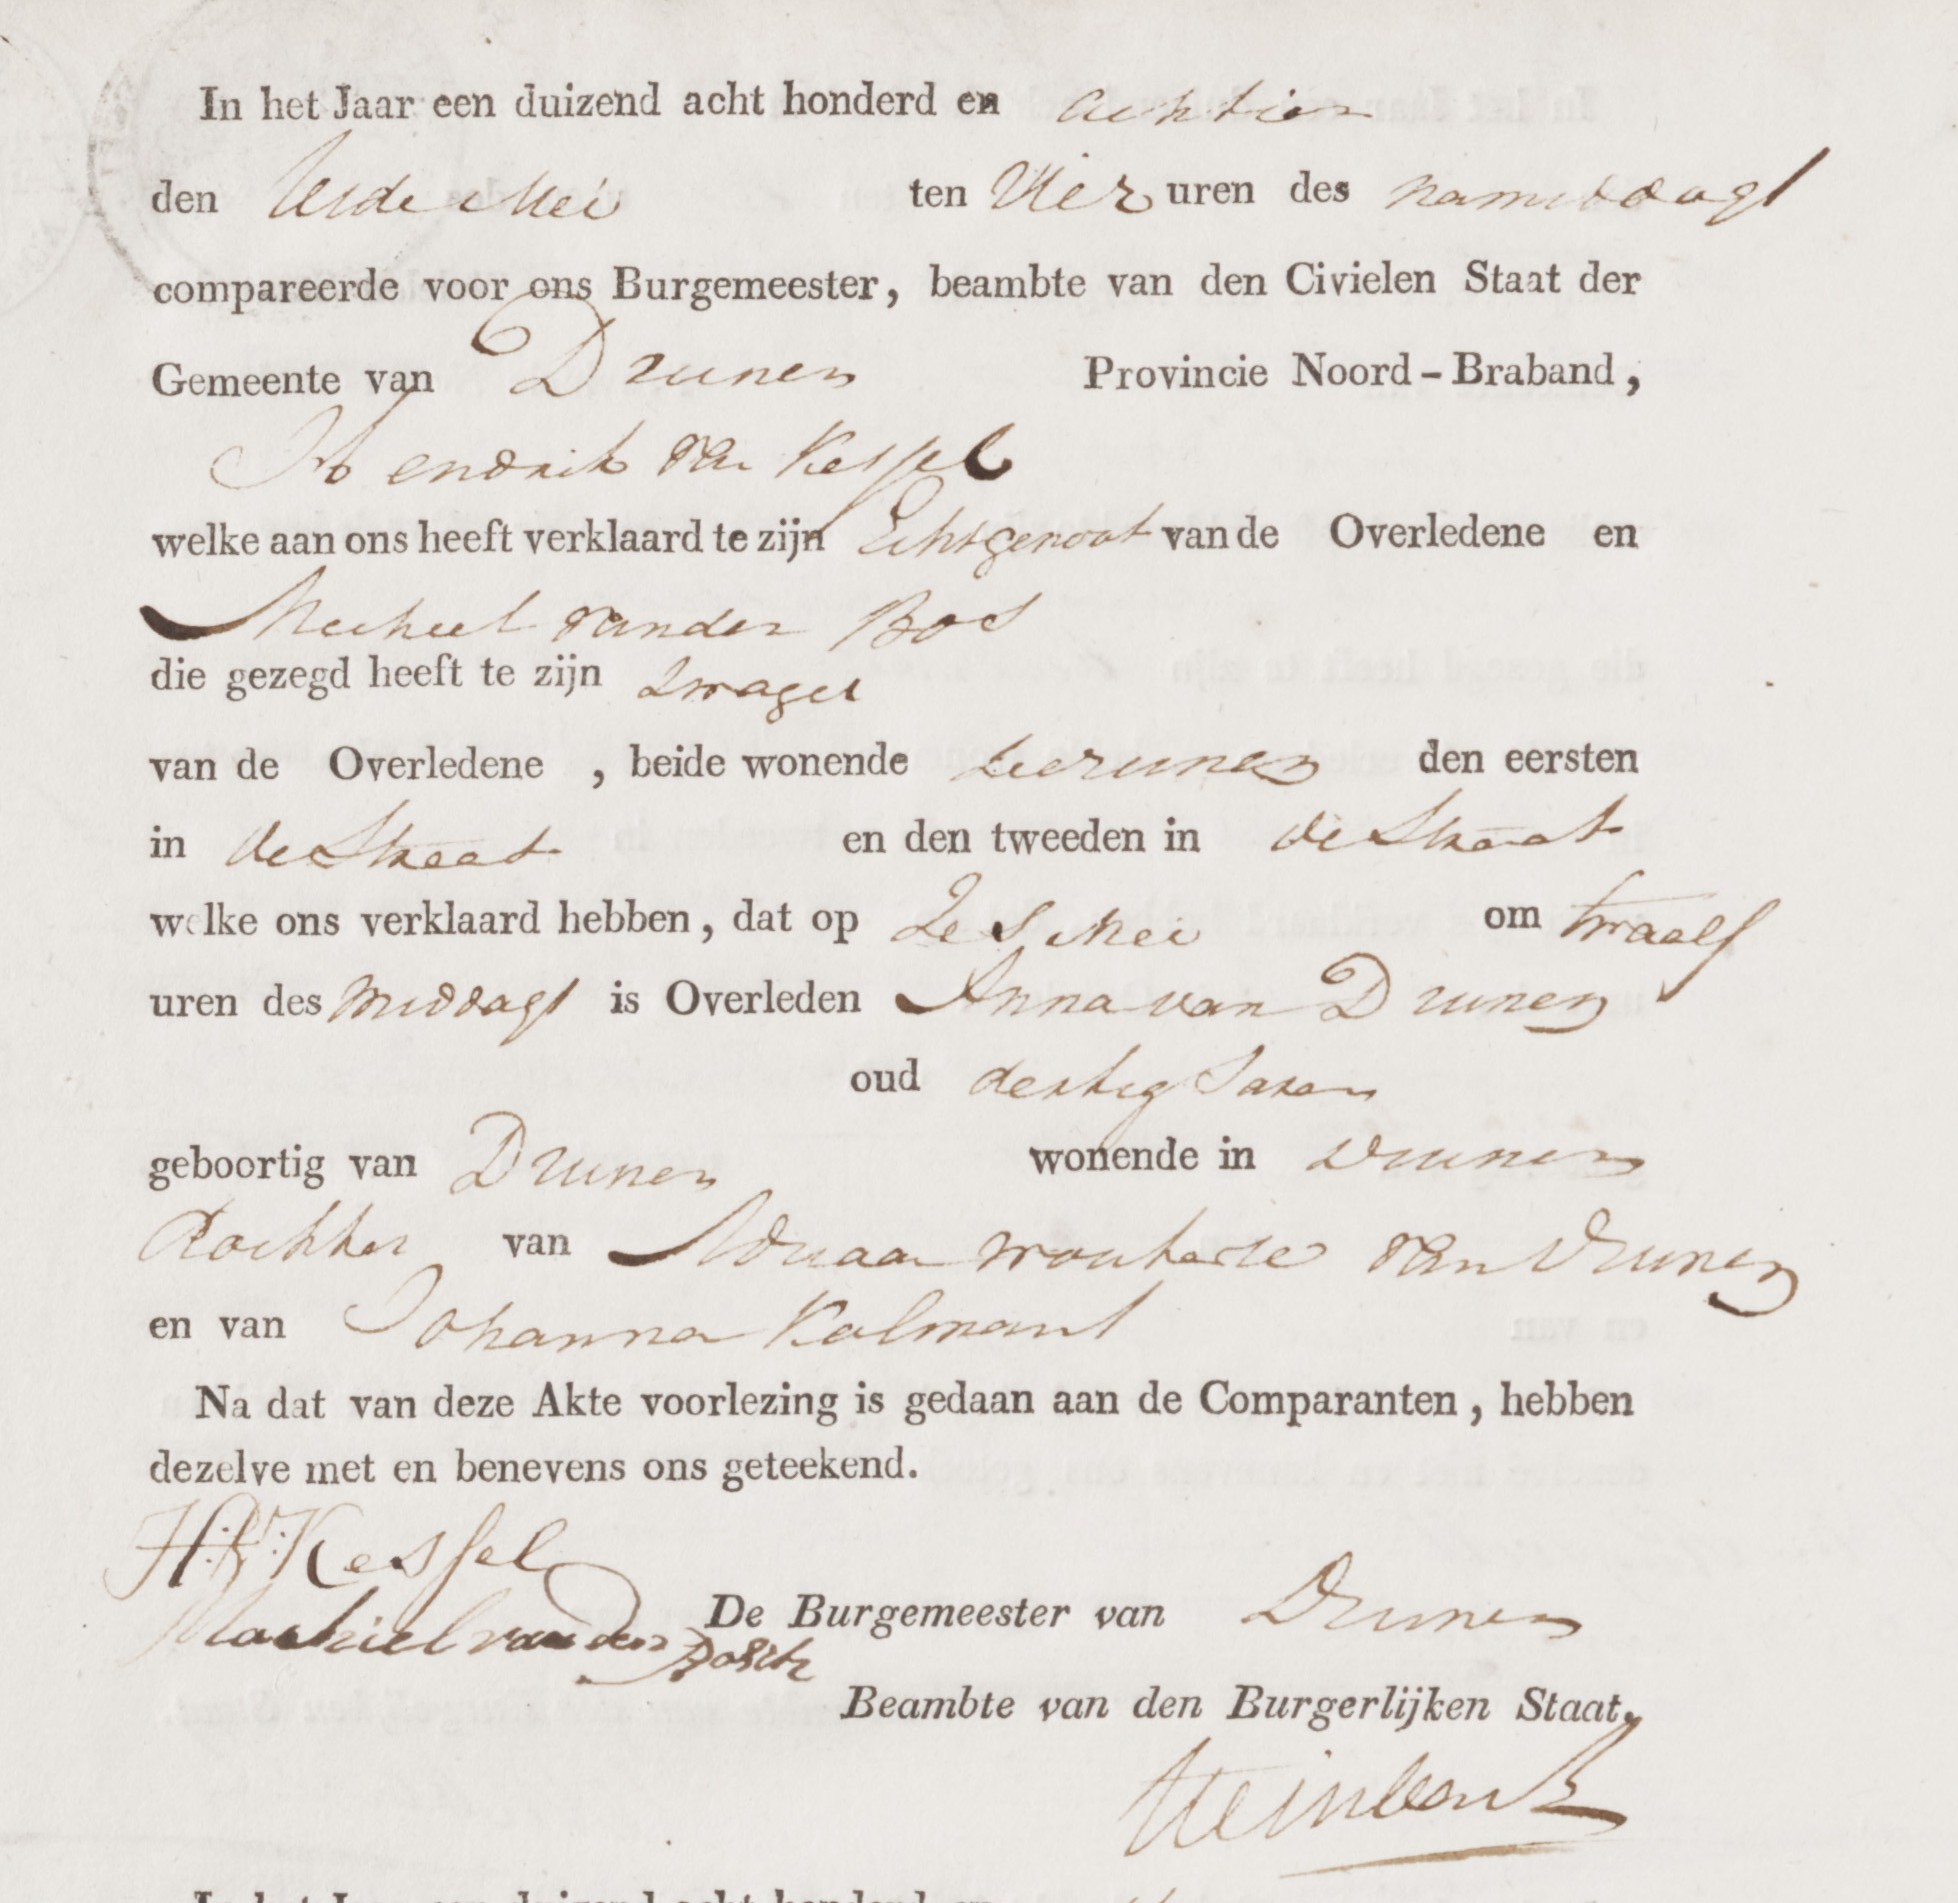 In het Jaar een duizend acht honderd en achtien
den Mei ten Vier uren des namiddags
compareerde voor ons Burgemeester, beambte van den Civielen Staat der
Gemeente van Drunen Provincie Noord-Braband,
Hendrik van Kessel
welke aan ons heeft verklaard te zijn Echtgenoot van de Overledene en
Mechiel vander Bos
die gezegd heeft te zijn Zwager
van de Overledene, beide wonende den eersten
in de Straat en den tweeden in de Straat
welke ons verklaard hebben, dat op Zes Mei om twaalf
uren des middags is Overleden Anna van Drunen
oud dertig Jaren
geboortig van Drunen wonende in Drunen
Dochter van Adriaan wouterse van Drunen
en van Johanna Kolmans
Na dat van deze Akte voorlezing is gedaan aan de Comparanten, hebben
dezelve met en benevens ons geteekend.
H:V:Kessel
Machiel van den Bosch
De Burgemeester van Drunen
Beambte van den Burgerlijken Staat.